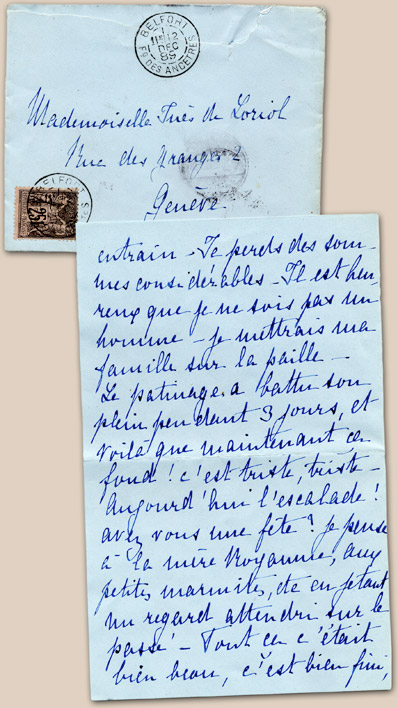 BELFORT
11E/12
DEC
85
FG DES ANCETRES
Mademoiselle Inès de Loriol
Rue des Granges 2
Genève
BELFORT
25
entrain – Je perds des som-
mes considérables – Il est heu-
reux que je ne sois pas un
homme – je mettrais ma
famille sur la paille –
Le patinage a battu son
plein pendant 3 jours, et
voilà que maintenant ça
fond ! c'est triste, triste –
Aujourd'hui l'escalade !
avez vous une fête ? je pense
à la mère Royaume, aux
petites marmites, etc en jetant
un regard attendri sur le
passé – Tout ça c'était
bien beau, c'est bien fini,